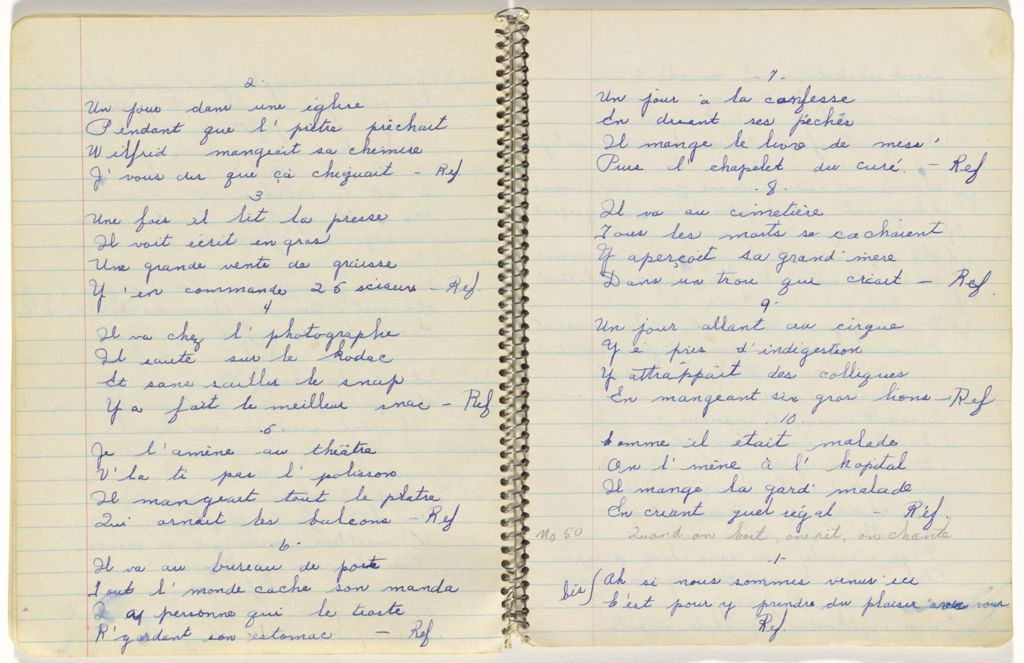 2.
Un jour dans une église
Pendant que l'prêtre prêchait
Wilfrid mangeait sa chemise
J'vous dis que çà chiquait - Ref
3
Une fois il lit la presse
Il voit écrit en gros
Une grande vente de graisse
Y'en commande 25 sciaux - Ref.
4
Il va chez l'photographe
Il saute sur le kodac
Et sans sailler le snap
Y a fait le meilleur snac - Ref
5.
Je l'amène au théâtre
V'la ti pas l'polisson
Il mangeait tout le platre
Qui ornait les balcons - Ref
6.
Il va au bureau de poste
Tout l'monde cache son manda
I a personne qui le toaste
R'gardant son estomac - Ref
-7-
Un jour à la confesse
En disant ses péchés
Il mange le livre de mess'
Puis l'chapelet du curé. - Ref
.8.
Il va au cimetière
Tous les morts se cachaient
Y aperçoit sa grand'mere
Dans un trou qui criait - Ref.
9.
Un jour allant au cirque
Y é pris d'indigestion
Y attrappait des colliques
En mangeant six gros lions - Ref
10.
Comme il était malade
On l'mène à l'hopital
Il mange la gard'malade
En criant quel régal - Réf.
No. 50 Quand on boit, on rit, on chante
-1-
bis { Ah si nous sommes venus ici
C'est pour y prendre du plaisir avec vous
Ref.